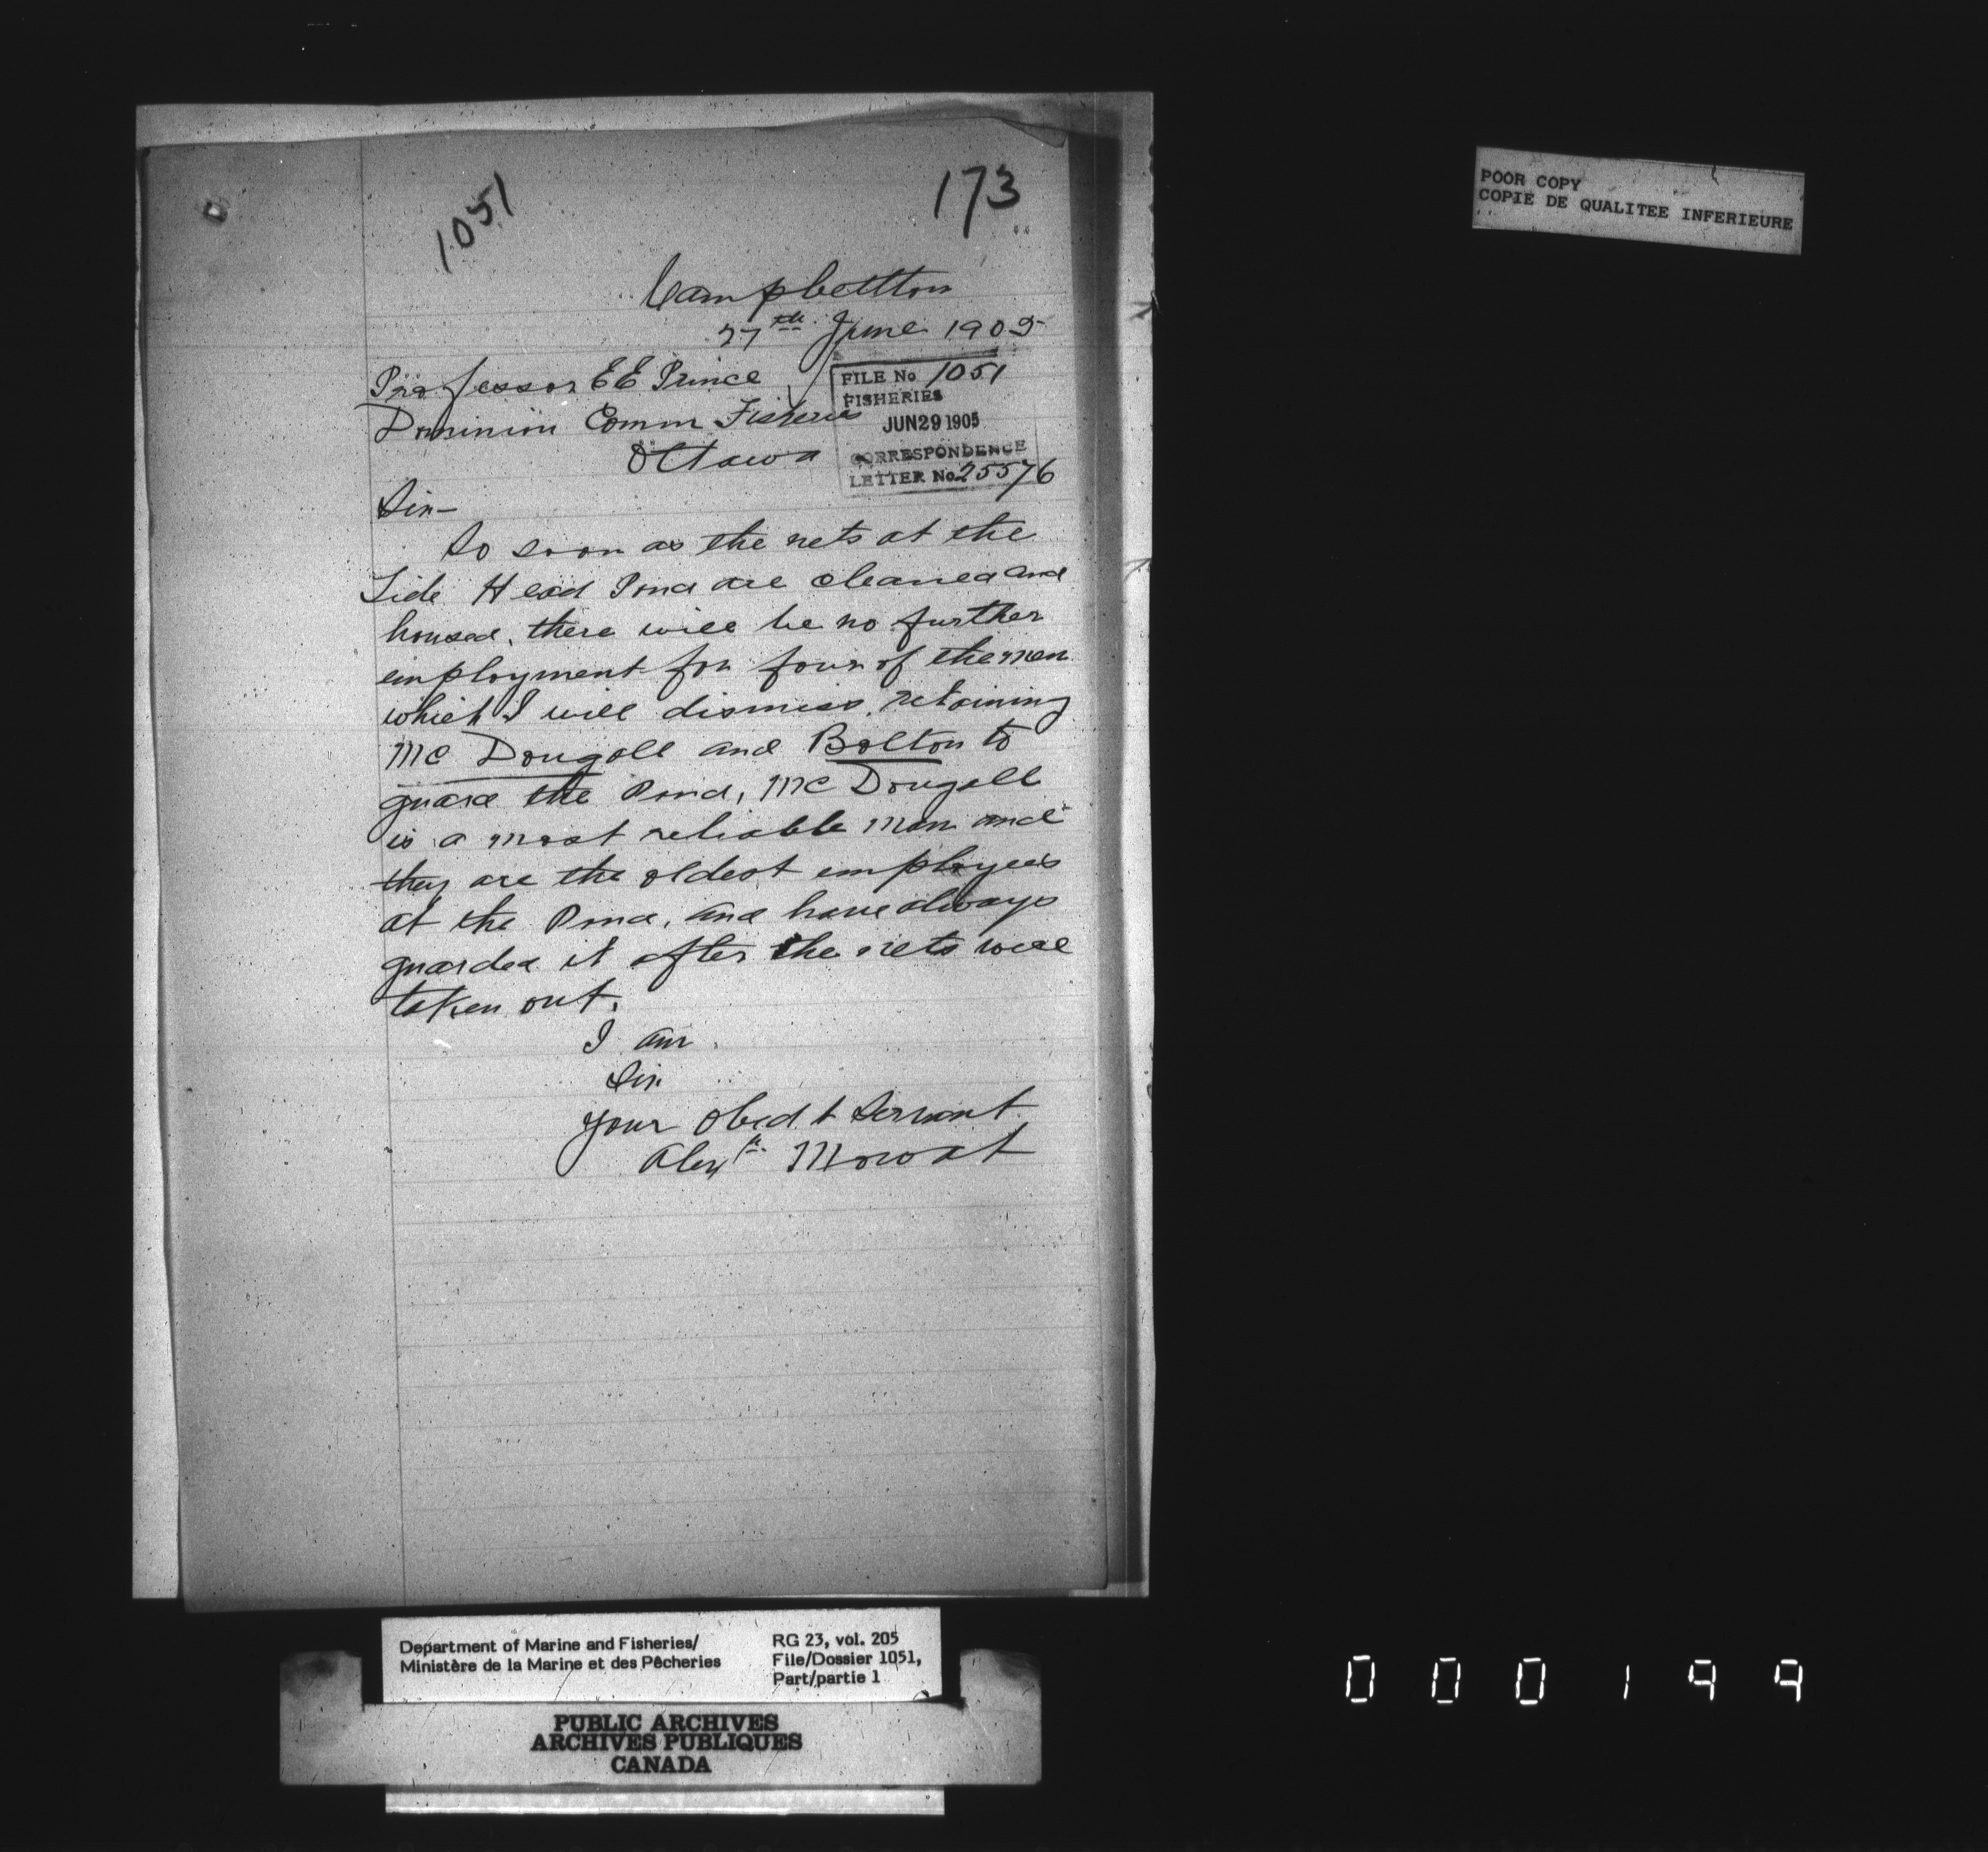 1051
173
Campbellton
27th June 1905
Professor E E Prince
Dominion Comm Fisheries
Ottawa
FILE No 1051
FISHERIES
JUN 29 1905
CORRESPONDENCE
LETTER No. 25576
Sir—
So soon as the nets at the
Tide Head Pond are cleaned and
housed, there will be no further
employment for four of the men
which I will dismiss, retaining
Mc Dougall and Bolton to
guard the Pond, Mc Dougall
is a most reliable man and
they are the oldest employees
at the Pond, and have always
guarded it after the nets were
taken out.
I am
Sir
your obed.t Servant
Alexr Mowat
POOR COPY
COPIE DE QUALITEE INFERIEURE
Department of Marine and Fisheries/
Ministère de la Marine et des Pêcheries
RG 23, vol. 205
File/Dossier 1051,
Part/partie 1
PUBLIC ARCHIVES
ARCHIVES PUBLIQUES
CANADA
000199